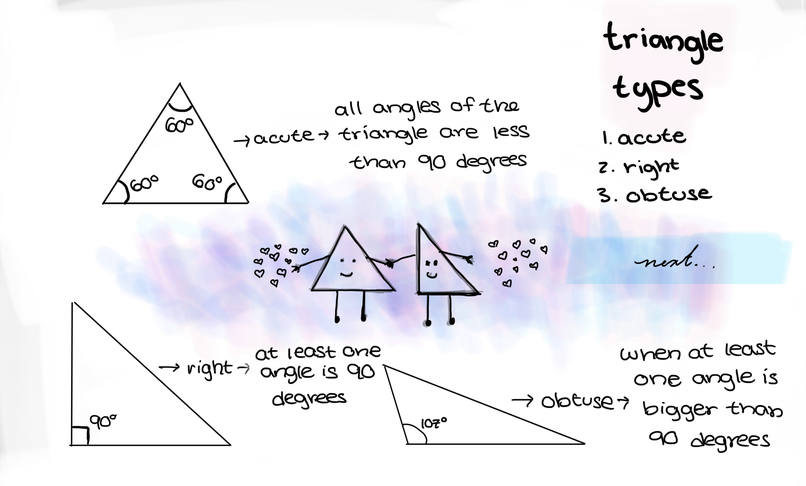 triangle
types
1. acute
2. right
3. obtuse
next...
60°
60°
60°
→acute→
all angles of the
triangle are less
than 90 degrees
90°
→right→
at least one
angle is 90
degrees
107°
→obtuse→
when at least
one angle is
bigger than
90 degrees